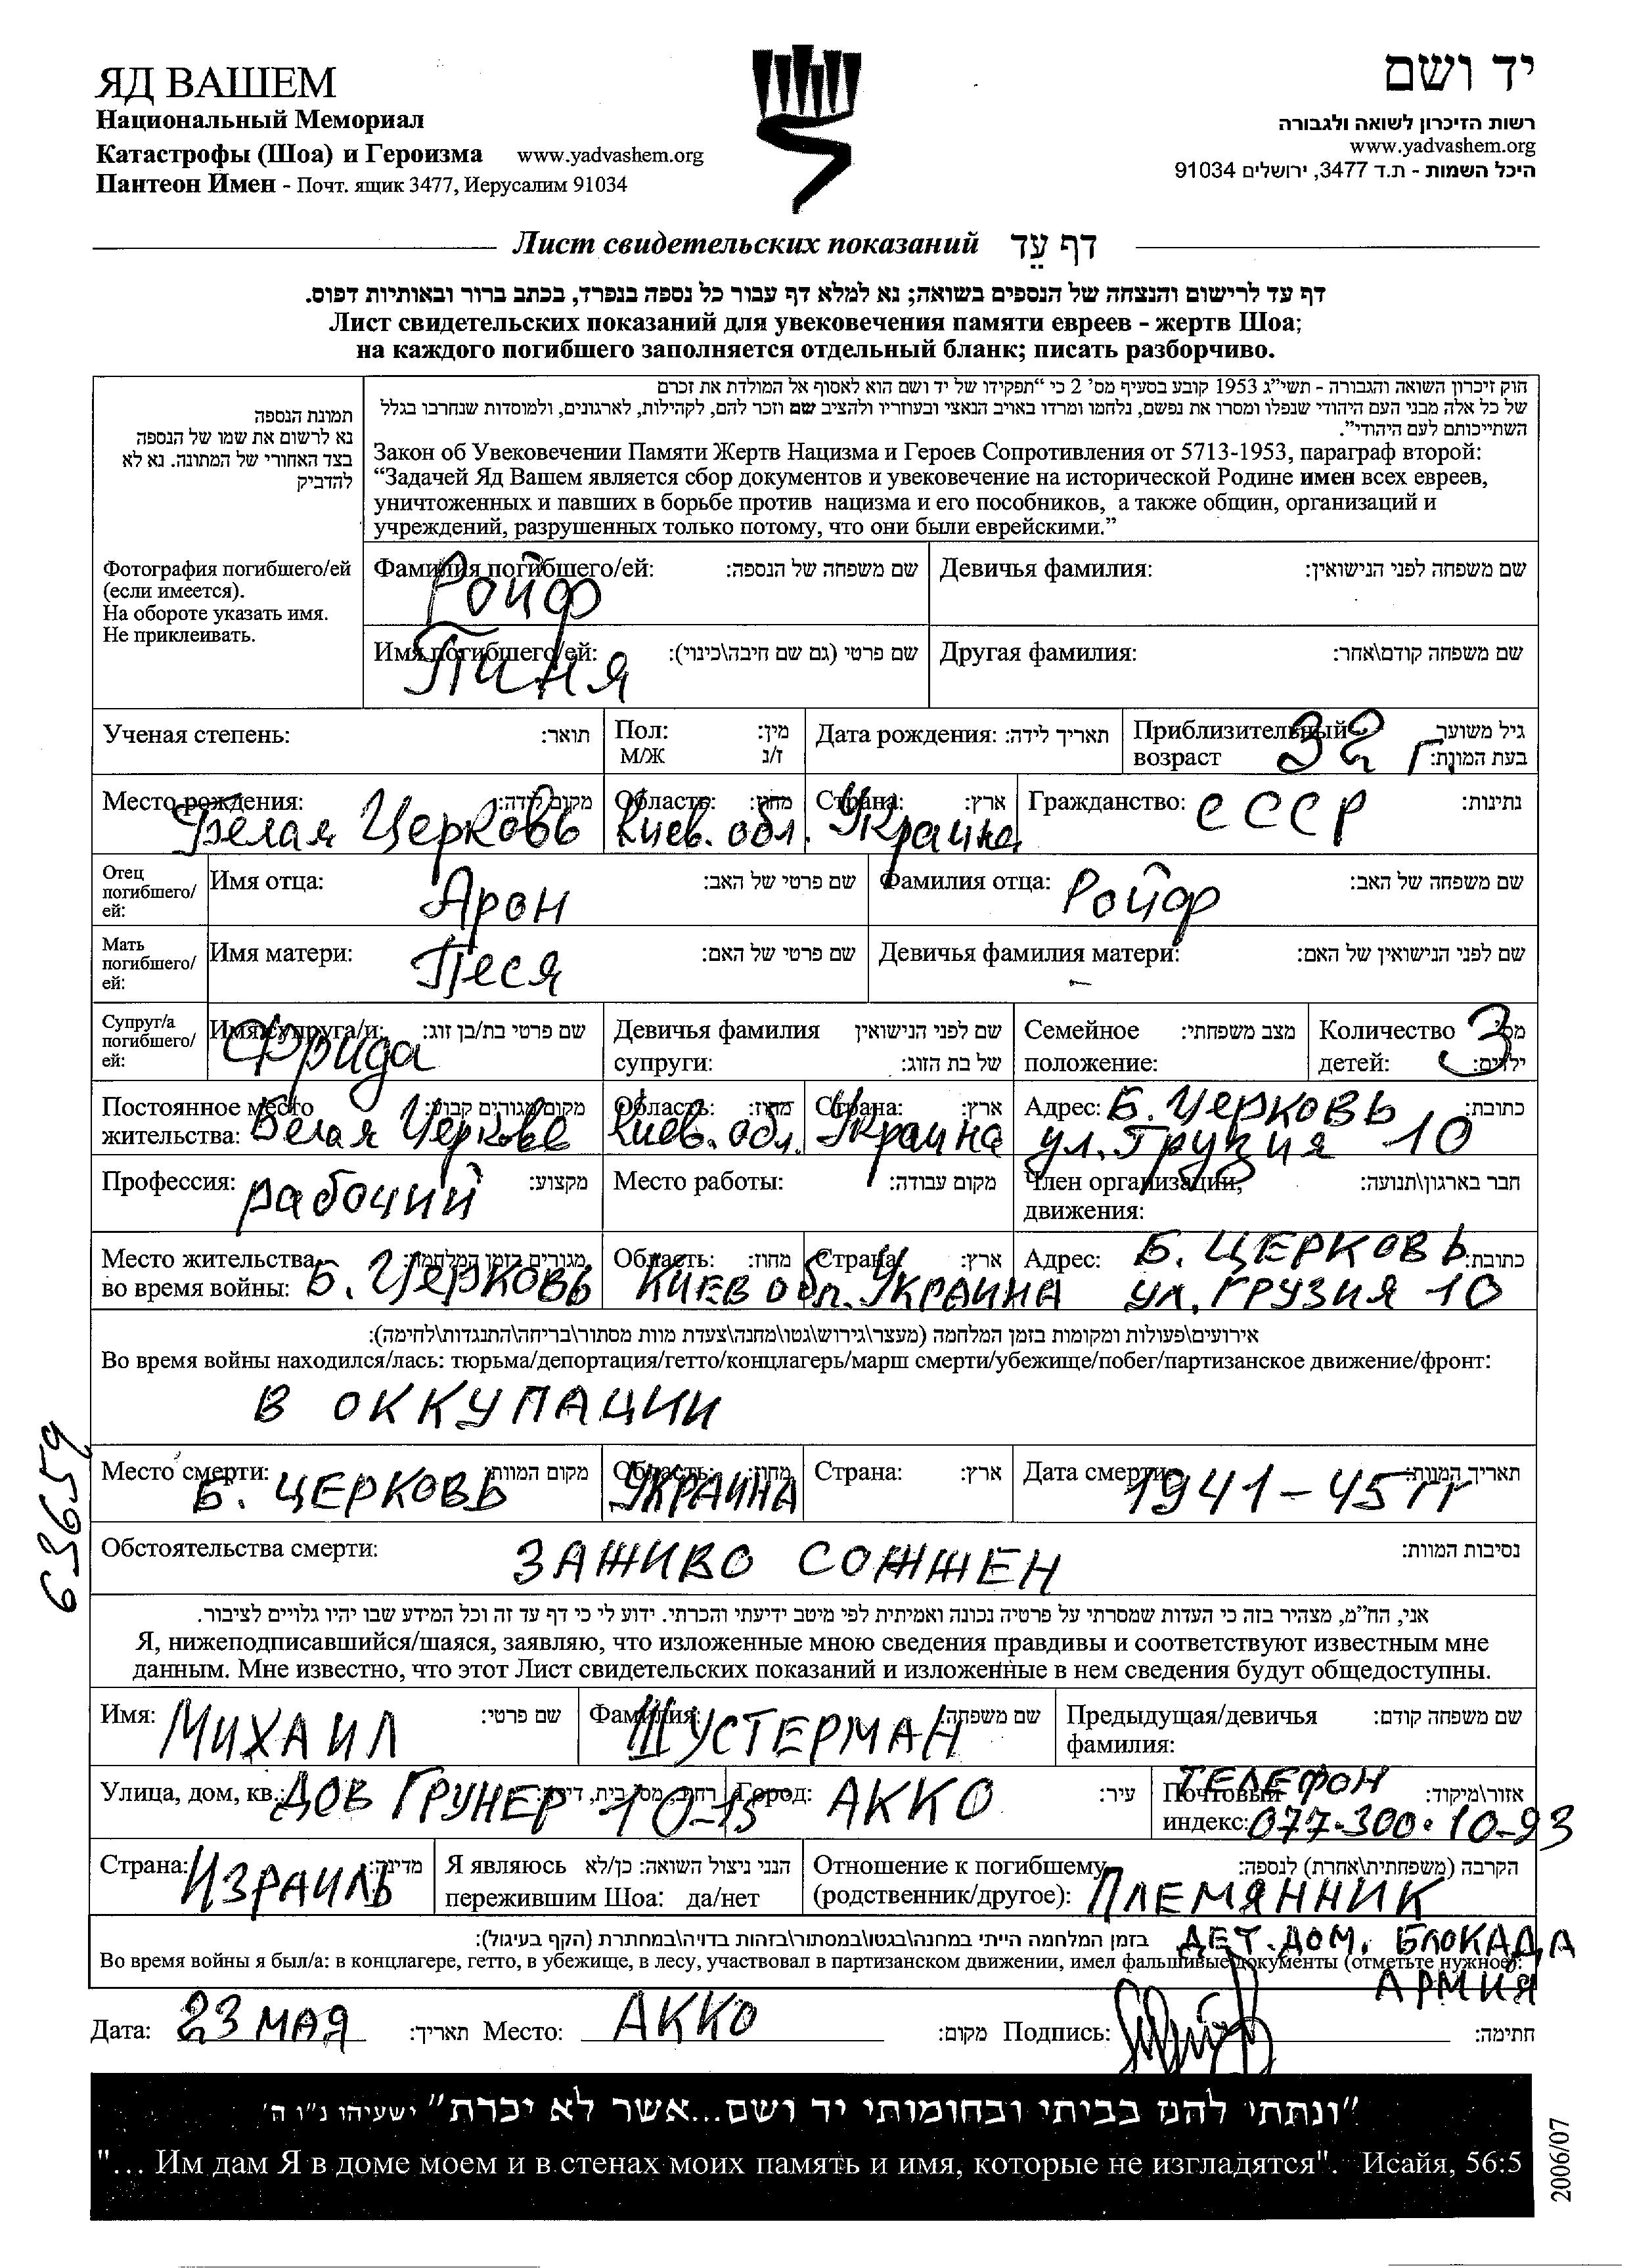 ЯД ВАШЕМ
Национальный Мемориал
Катастрофы (Шоа) и Героизма www.yadvashem.org
Пантеон Имен - Почт. ящик 3477, Иерусалим 91034
יד ושם
רשות הזיכרון לשואה ולגבורה
www.yadvashem.org
היכל השמות - ת.ד 3477, ירושלים 91034
Лист свидетельских показаний דף עֵד
דף עד לרישום והנצחה של הנספים בשואה; נא למלא דף עבור כל נספה בנפרד, בכתב ברור ובאותיות דפוס.
Лист свидетельских показаний для увековечения памяти евреев - жертв Шоа;
на каждого погибшего заполняется отдельный бланк; писать разборчиво.
תמונת הנספה
נא לרשום את שמו של הנספה
בצד האחורי של המתונה. נא לא
להדביק
Фотография погибшего/ей
(если имеется).
На обороте указать имя.
Не приклеивать.
חוק זיכרון השואה והגבורה - תשי"ג 1953 קובע בסעיף מס' 2 כי "תפקידו של יד ושם הוא לאסוף אל המולדת את זכרם
של כל אלה מבני העם היהודי שנפלו ומסרו את נפשם, נלחמו ומרדו באויב הנאצי ובעוזריו ולהציב שם וזכר להם, לקהילות, לארגונים, ולמוסדות שנחרבו בגלל
השתייכותם לעם היהודי".
Закон об Увековечении Памяти Жертв Нацизма и Героев Сопротивления от 5713-1953, параграф второй:
"Задачей Яд Вашем является сбор документов и увековечение на исторической Родине имен всех евреев,
уничтоженных и павших в борьбе против нацизма и его пособников, а также общин, организаций и
учреждений, разрушенных только потому, что они были еврейскими."
Фамилия погибшего/ей: שם משפחה של הנספה: Девичья фамилия: שם משפחה לפני הנישואין:
Ройф
Имя погибшего/ей: שם פרטי (גם שם חיבה\כינוי): Другая фамилия: שם משפחה קודם\אחר:
Пиня
Ученая степень: תואר: Пол: מין: Дата рождения: תאריך לידה: Приблизительный גיל משוער
М/Ж ז/נ возраст בעת המוות: 32 г.
Место рождения: מקום לידה: Область: מחוז: Страна: ארץ: Гражданство: СССР נתינות:
Белая Церковь Киев. обл. Украина
Отец погибшего/ей: Имя отца: Арон שם פרטי של האב: Фамилия отца: Ройф שם משפחה של האב:
Мать погибшего/ей: Имя матери: Песя שם פרטי של האם: Девичья фамилия матери: - שם לפני הנישואין של האם:
Супруг/а погибшего/ей: Имя супруга/и: Фрида שם פרטי בת/בן זוג: Девичья фамилия супруги: שם לפני הנישואין של בת הזוג: Семейное положение: מצב משפחתי: Количество детей: 3 מס' ילדים:
Постоянное место מקום מגורים קבוע: Область: מחוז: Страна: ארץ: Адрес: Б. Церковь כתובת:
жительства: Белая Церковь Киев. обл. Украина ул. Грузия 10
Профессия: рабочий מקצוע: Место работы: מקום עבודה: Член организации, חבר בארגון\תנועה:
движения:
Место жительства מגורים בזמן המלחמה: Область: מחוז: Страна: ארץ: Адрес: Б. ЦЕРКОВЬ כתובת:
во время войны: Б. Церковь КИЕВ обл. УКРАИНА ул. ГРУЗИЯ 10
אירועים\פעולות ומקומות בזמן המלחמה (מעצר\גירוש\גטו\מחנה\צעדת מוות מסתור\בריחה\התנגדות\לחימה):
Во время войны находился/лась: тюрьма/депортация/гетто/концлагерь/марш смерти/убежище/побег/партизанское движение/фронт:
В ОККУПАЦИИ
63659
Место смерти: מקום המוות: Область: מחוז: Страна: ארץ: Дата смерти: תאריך המוות:
Б. ЦЕРКОВЬ УКРАИНА 1941-45 гг
Обстоятельства смерти: ЗАЖИВО СОЖЖЕН נסיבות המוות:
אני, הח"מ, מצהיר בזה כי העדות שמסרתי על פרטיה נכונה ואמיתית לפי מיטב ידיעתי והכרתי. ידוע לי כי דף עד זה וכל המידע שבו יהיו גלויים לציבור.
Я, нижеподписавшийся/шаяся, заявляю, что изложенные мною сведения правдивы и соответствуют известным мне
данным. Мне известно, что этот Лист свидетельских показаний и изложенные в нем сведения будут общедоступны.
Имя: МИХАИЛ שם פרטי: Фамилия: ШУСТЕРМАН שם משפחה: Предыдущая/девичья שם משפחה קודם:
фамилия:
Улица, дом, кв.: ДОВ ГРУНЕР 10-13 רחוב, מס' בית, דירה: Город: АККО עיר: Почтовый ТЕЛЕФОН אזור\מיקוד:
индекс: 077-300-10-93
Страна: ИЗРАИЛЬ מדינה: Я являюсь הנני ניצול השואה: כן/לא Отношение к погибшему הקרבה (משפחתית\אחרת) לנספה:
пережившим Шоа: да/нет (родственник/другое): ПЛЕМЯННИК
בזמן המלחמה הייתי במחנה\בגטו\במסתור\בזהות בדויה\במחתרת (הקף בעיגול): ДЕТ. ДОМ. БЛОКАДА
Во время войны я был/а: в концлагере, гетто, в убежище, в лесу, участвовал в партизанском движении, имел фальшивые документы (отметьте нужное):
АРМИЯ
Дата: 23 МАЯ תאריך: Место: АККО מקום: Подпись: חתימה:
"ונתתי להם בביתי ובחומותי יד ושם...אשר לא יכרת" ישעיהו נ"ו ה'
"... Им дам Я в доме моем и в стенах моих память и имя, которые не изгладятся". Исайя, 56:5
2006/07